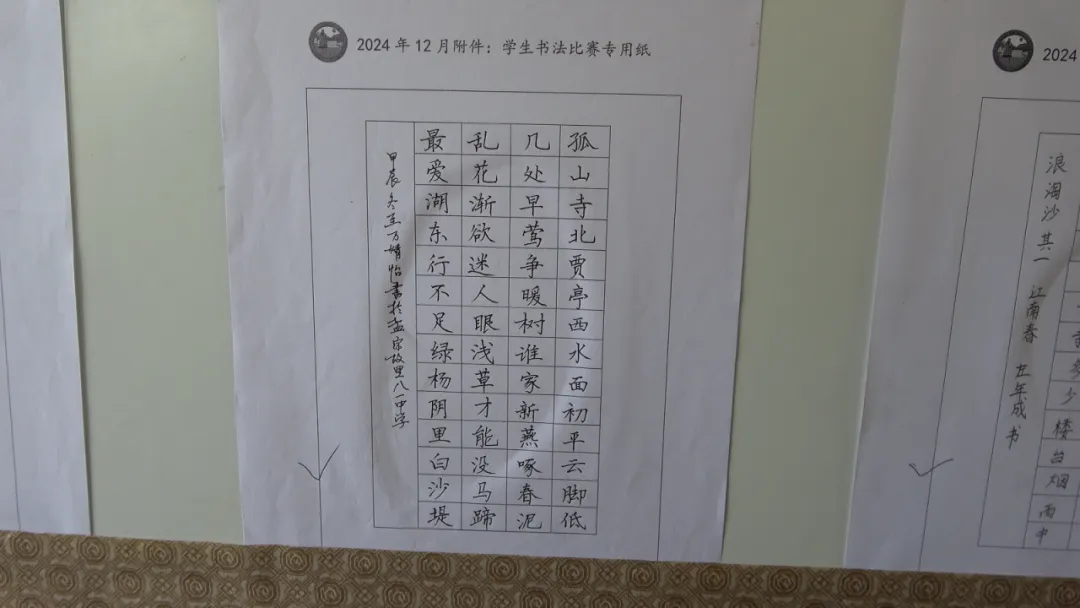 2024年12月附件：学生书法比赛专用纸
孤山寺北贾亭西水面初平云脚低
几处早莺争暖树谁家新燕啄春泥
乱花渐欲迷人眼浅草才能没马蹄
最爱湖东行不足绿杨阴里白沙堤
甲辰冬至万婧怡书於孟宗故里八一中学
2024
少楼台烟雨中
浪淘沙其一 江南春